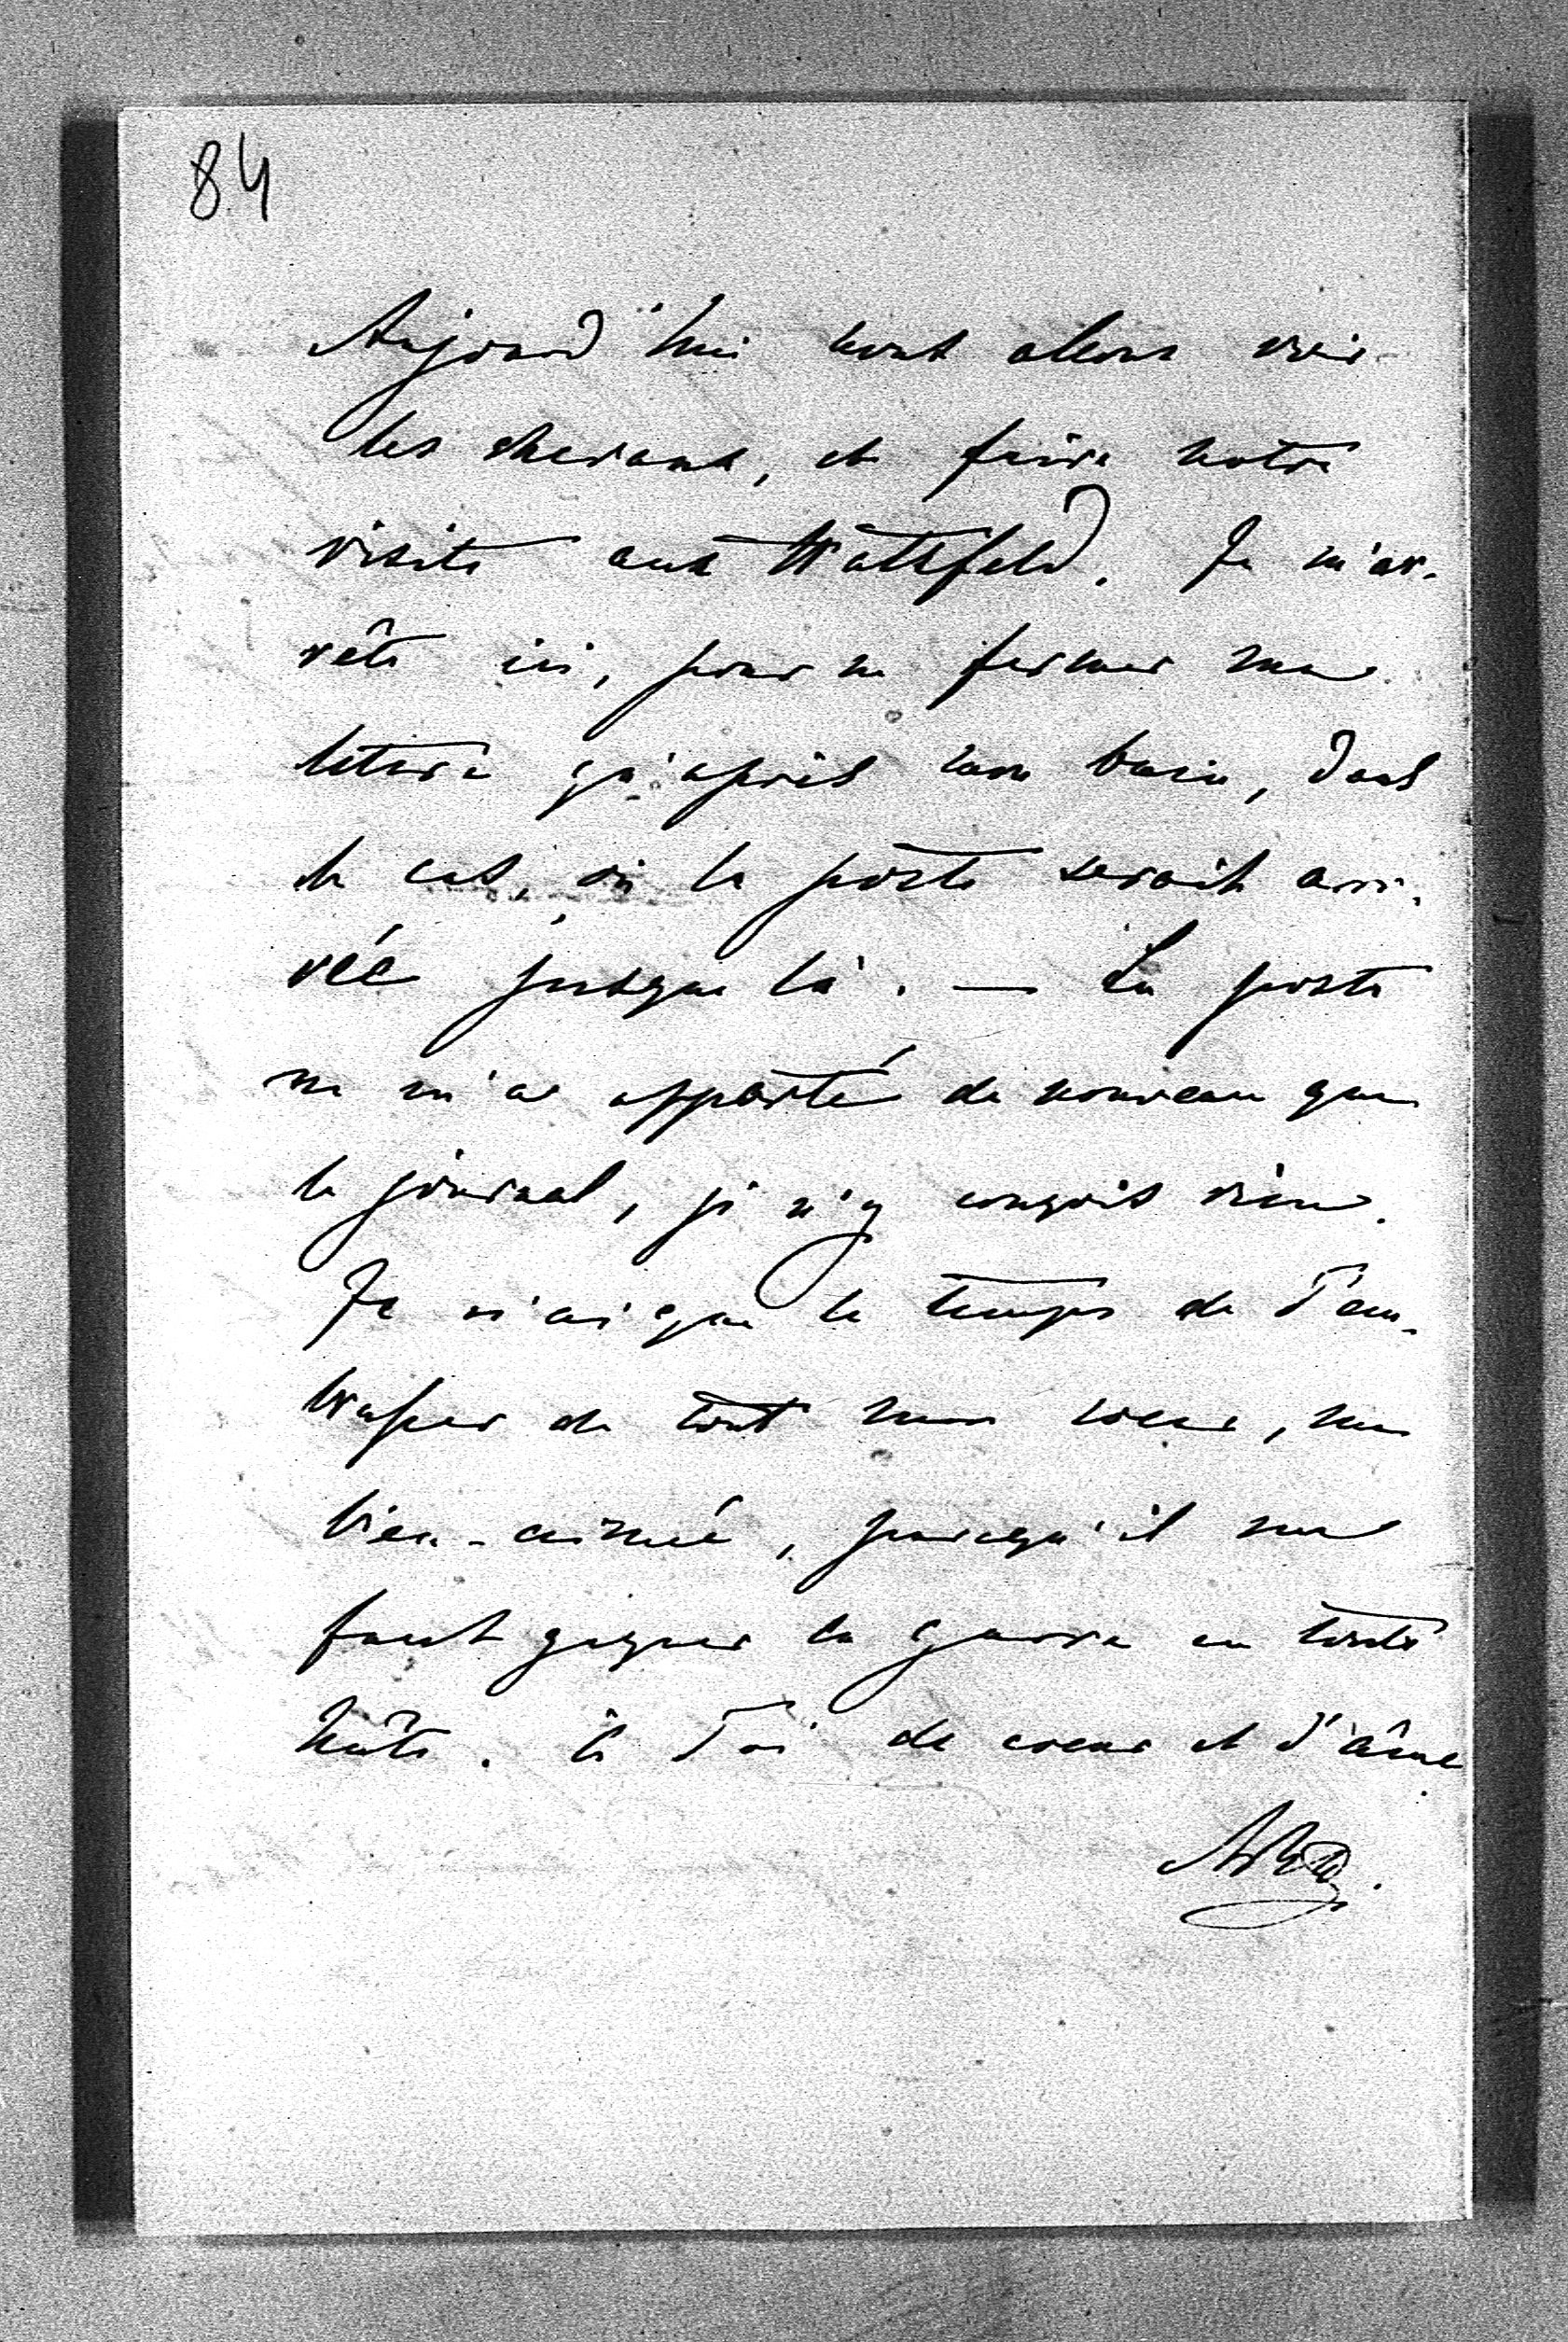 84
Aujourd'hui nous allons voir
les chevaux, et faire notre
visite aux Hatzfeld. Je m'ar-
rête ici, pour ne fermer ma
lettre qu'après mon bain, dans
le cas, où la poste serait arri-
vée jusque là. — La poste
ne m'a apporté de nouveau que
le journal, je n'y conçois rien.
Je n'ai que le temps de T'em-
brasser de tout mon coeur, mon
bien-aimé, puisqu'il me
faut gagner la guerre en toute
hâte. à Toi de coeur et d'âme